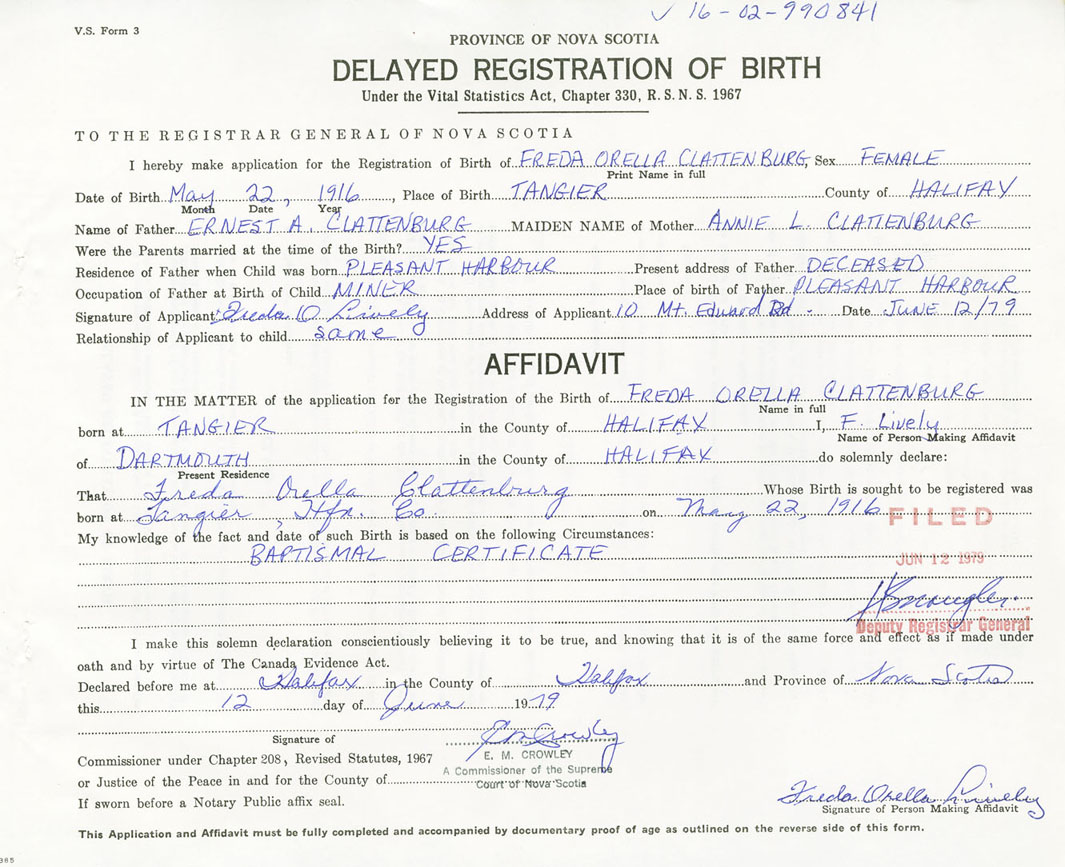 ✓ 16-02-990841
V.S. Form 3
PROVINCE OF NOVA SCOTIA
DELAYED REGISTRATION OF BIRTH
Under the Vital Statistics Act, Chapter 330, R.S.N.S. 1967
TO THE REGISTRAR GENERAL OF NOVA SCOTIA
I hereby make application for the Registration of Birth of FREDA ORELLA CLATTENBURG, Sex FEMALE
Print Name in full
Date of Birth May 22, 1916, Place of Birth TANGIER County of HALIFAX
Month Date Year
Name of Father ERNEST A. CLATTENBURG MAIDEN NAME of Mother ANNIE L. CLATTENBURG
Were the Parents married at the time of the Birth? YES
Residence of Father when Child was born PLEASANT HARBOUR Present address of Father DECEASED
Occupation of Father at Birth of Child MINER Place of birth of Father PLEASANT HARBOUR
Signature of Applicant Freda O Lively Address of Applicant 10 Mt. Edward Rd. Date JUNE 12/79
Relationship of Applicant to child same
AFFIDAVIT
IN THE MATTER of the application for the Registration of the Birth of FREDA ORELLA CLATTENBURG
Name in full
born at TANGIER in the County of HALIFAX I, F. Lively
Name of Person Making Affidavit
of DARTMOUTH in the County of HALIFAX do solemnly declare:
Present Residence
That Freda Orella Clattenburg Whose Birth is sought to be registered was
born at Tangier, Hfx. Co. on May 22, 1916
FILED
My knowledge of the fact and date of such Birth is based on the following Circumstances:
BAPTISMAL CERTIFICATE
JUN 12 1979
Deputy Registrar General
I make this solemn declaration conscientiously believing it to be true, and knowing that it is of the same force and effect as if made under
oath and by virtue of The Canada Evidence Act.
Declared before me at Halifax in the County of Halifax and Province of Nova Scotia
this 12 day of June 1979
Signature of EM Crowley
E. M. CROWLEY
Commissioner under Chapter 208, Revised Statutes, 1967
A Commissioner of the Supreme
Court of Nova Scotia
or Justice of the Peace in and for the County of
If sworn before a Notary Public affix seal.
Freda Orella Lively
Signature of Person Making Affidavit
This Application and Affidavit must be fully completed and accompanied by documentary proof of age as outlined on the reverse side of this form.
365